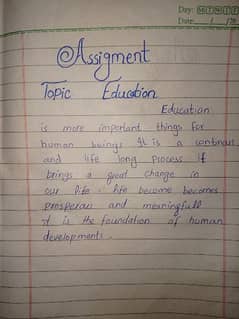 Day:
Date
Assigment
Topic Education
Education
is more important things for
human beings It is a continous
and life long process If
brings a great change in
our life. life become becomes
prosperous and meaningfull
It is the foundation of human
developments.